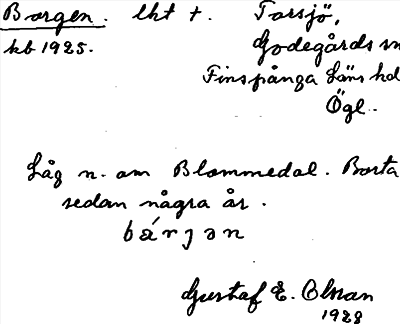 Borgen. lht +. Torsjö,
kb 1925. Godegårds sn
Finspånga Läns hd
Ögl.
Låg n. om Blommedal. Borta
sedan några år.
bárjən
Gustaf E. Olsson
1928